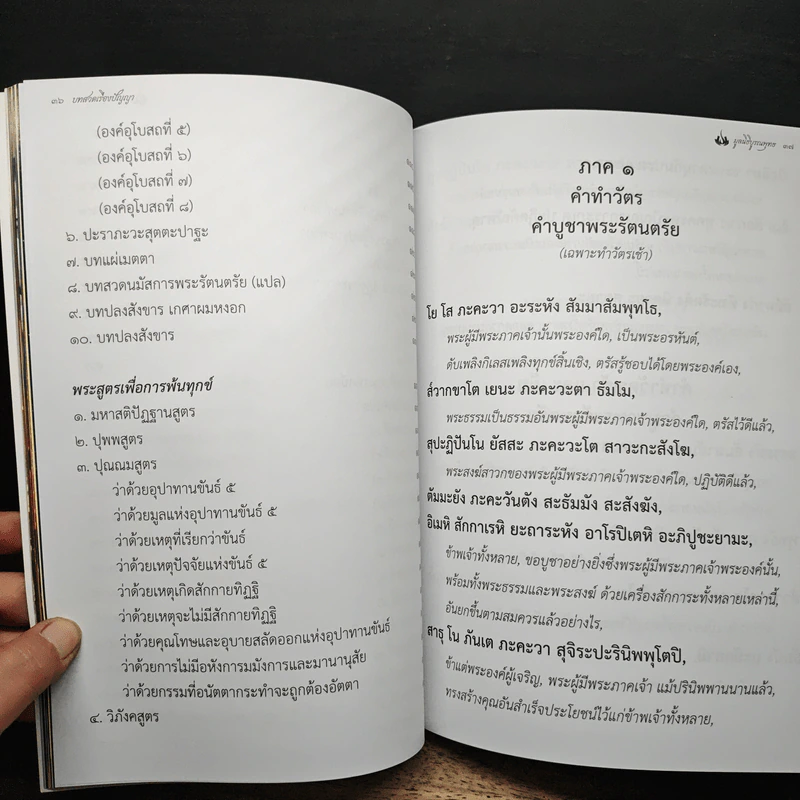 ๓๖ บทสวดเรืองปัญญา
(องค์อุโบสถที่ ๕)
(องค์อุโบสถที่ ๖)
(องค์อุโบสถที่ ๗)
(องค์อุโบสถที่ ๘)
๖. ปะราภะวะสุตตะปาฐะ
๗. บทแผ่เมตตา
๘. บทสวดนมัสการพระรัตนตรัย (แปล)
๙. บทปลงสังขาร เกศาผมหงอก
๑๐. บทปลงสังขาร
พระสูตรเพื่อการพ้นทุกข์
๑. มหาสติปัฏฐานสูตร
๒. ปุพพสูตร
๓. ปุณณมสูตร
ว่าด้วยอุปาทานขันธ์ ๕
ว่าด้วยมูลแห่งอุปาทานขันธ์ ๕
ว่าด้วยเหตุที่เรียกว่าขันธ์
ว่าด้วยเหตุปัจจัยแห่งขันธ์ ๕
ว่าด้วยเหตุเกิดสักกายทิฏฐิ
ว่าด้วยเหตุจะไม่มีสักกายทิฏฐิ
ว่าด้วยคุณโทษและอุบายสลัดออกแห่งอุปาทานขันธ์
ว่าด้วยการไม่มีอหังการมมังการและมานานุสัย
ว่าด้วยกรรมที่อนัตตากระทำจะถูกต้องอัตตา
๔. วิภังคสูตร
๓๗
ภาค ๑
คำทำวัตร
คำบูชาพระรัตนตรัย
(เฉพาะทำวัตรเช้า)
โย โส ภะคะวา อะระหัง สัมมาสัมพุทโธ,
พระผู้มีพระภาคเจ้านั้นพระองค์ใด, เป็นพระอรหันต์,
ดับเพลิงกิเลสเพลิงทุกข์สิ้นเชิง, ตรัสรู้ชอบได้โดยพระองค์เอง,
ส๎วากขาโต เยนะ ภะคะวะตา ธัมโม,
พระธรรมเป็นธรรมอันพระผู้มีพระภาคเจ้าพระองค์ใด, ตรัสไว้ดีแล้ว,
สุปะฏิปันโน ยัสสะ ภะคะวะโต สาวะกะสังโฆ,
พระสงฆ์สาวกของพระผู้มีพระภาคเจ้าพระองค์ใด, ปฏิบัติดีแล้ว,
ตัมมะยัง ภะคะวันตัง สะธัมมัง สะสังฆัง,
อิเมหิ สักกาเรหิ ยะถาระหัง อาโรปิเตหิ อะภิปูชะยามะ,
ข้าพเจ้าทั้งหลาย, ขอบูชาอย่างยิ่งซึ่งพระผู้มีพระภาคเจ้าพระองค์นั้น,
พร้อมทั้งพระธรรมและพระสงฆ์ ด้วยเครื่องสักการะทั้งหลายเหล่านี้,
อันยกขึ้นตามสมควรแล้วอย่างไร,
สาธุ โน ภันเต ภะคะวา สุจิระปะรินิพพุโตปิ,
ข้าแต่พระองค์ผู้เจริญ, พระผู้มีพระภาคเจ้า แม้ปรินิพพานนานแล้ว,
ทรงสร้างคุณอันสำเร็จประโยชน์ไว้แก่ข้าพเจ้าทั้งหลาย,